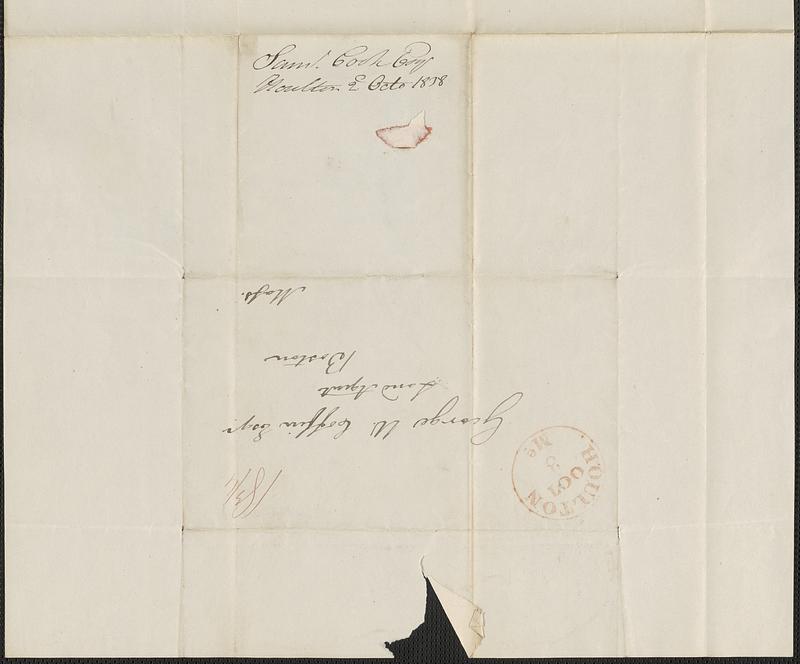 Saml. Cook Esq
Houlton 2 Octo 1838
George W. Coffin Esqr.
Land Agent
Boston
Mass.
18 3/4
HOULTON
OCT
3
Me